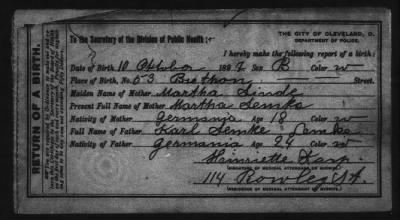 THE CITY OF CLEVELAND, O.
DEPARTMENT OF POLICE.
To the Secretary of the Division of Public Health:
I hereby make the following report of a birth:
Date of Birth 10 Oktober 1887 Sex B Color w
Place of Birth, No. 53 Street.
Maiden Name of Mother Martha Linde
Present Full Name of Mother Martha Lemke
Nativity of Mother Germania Age 18 Color w
Full Name of Father Karl Lemke Lemke
Nativity of Father Germania Age 24 Color w
Henriette
(SIGNATURE OF MEDICAL ATTENDANT OR MIDWIFE.)
114 St.
(RESIDENCE OF MEDICAL ATTENDANT OR MIDWIFE.)
RETURN OF A BIRTH.